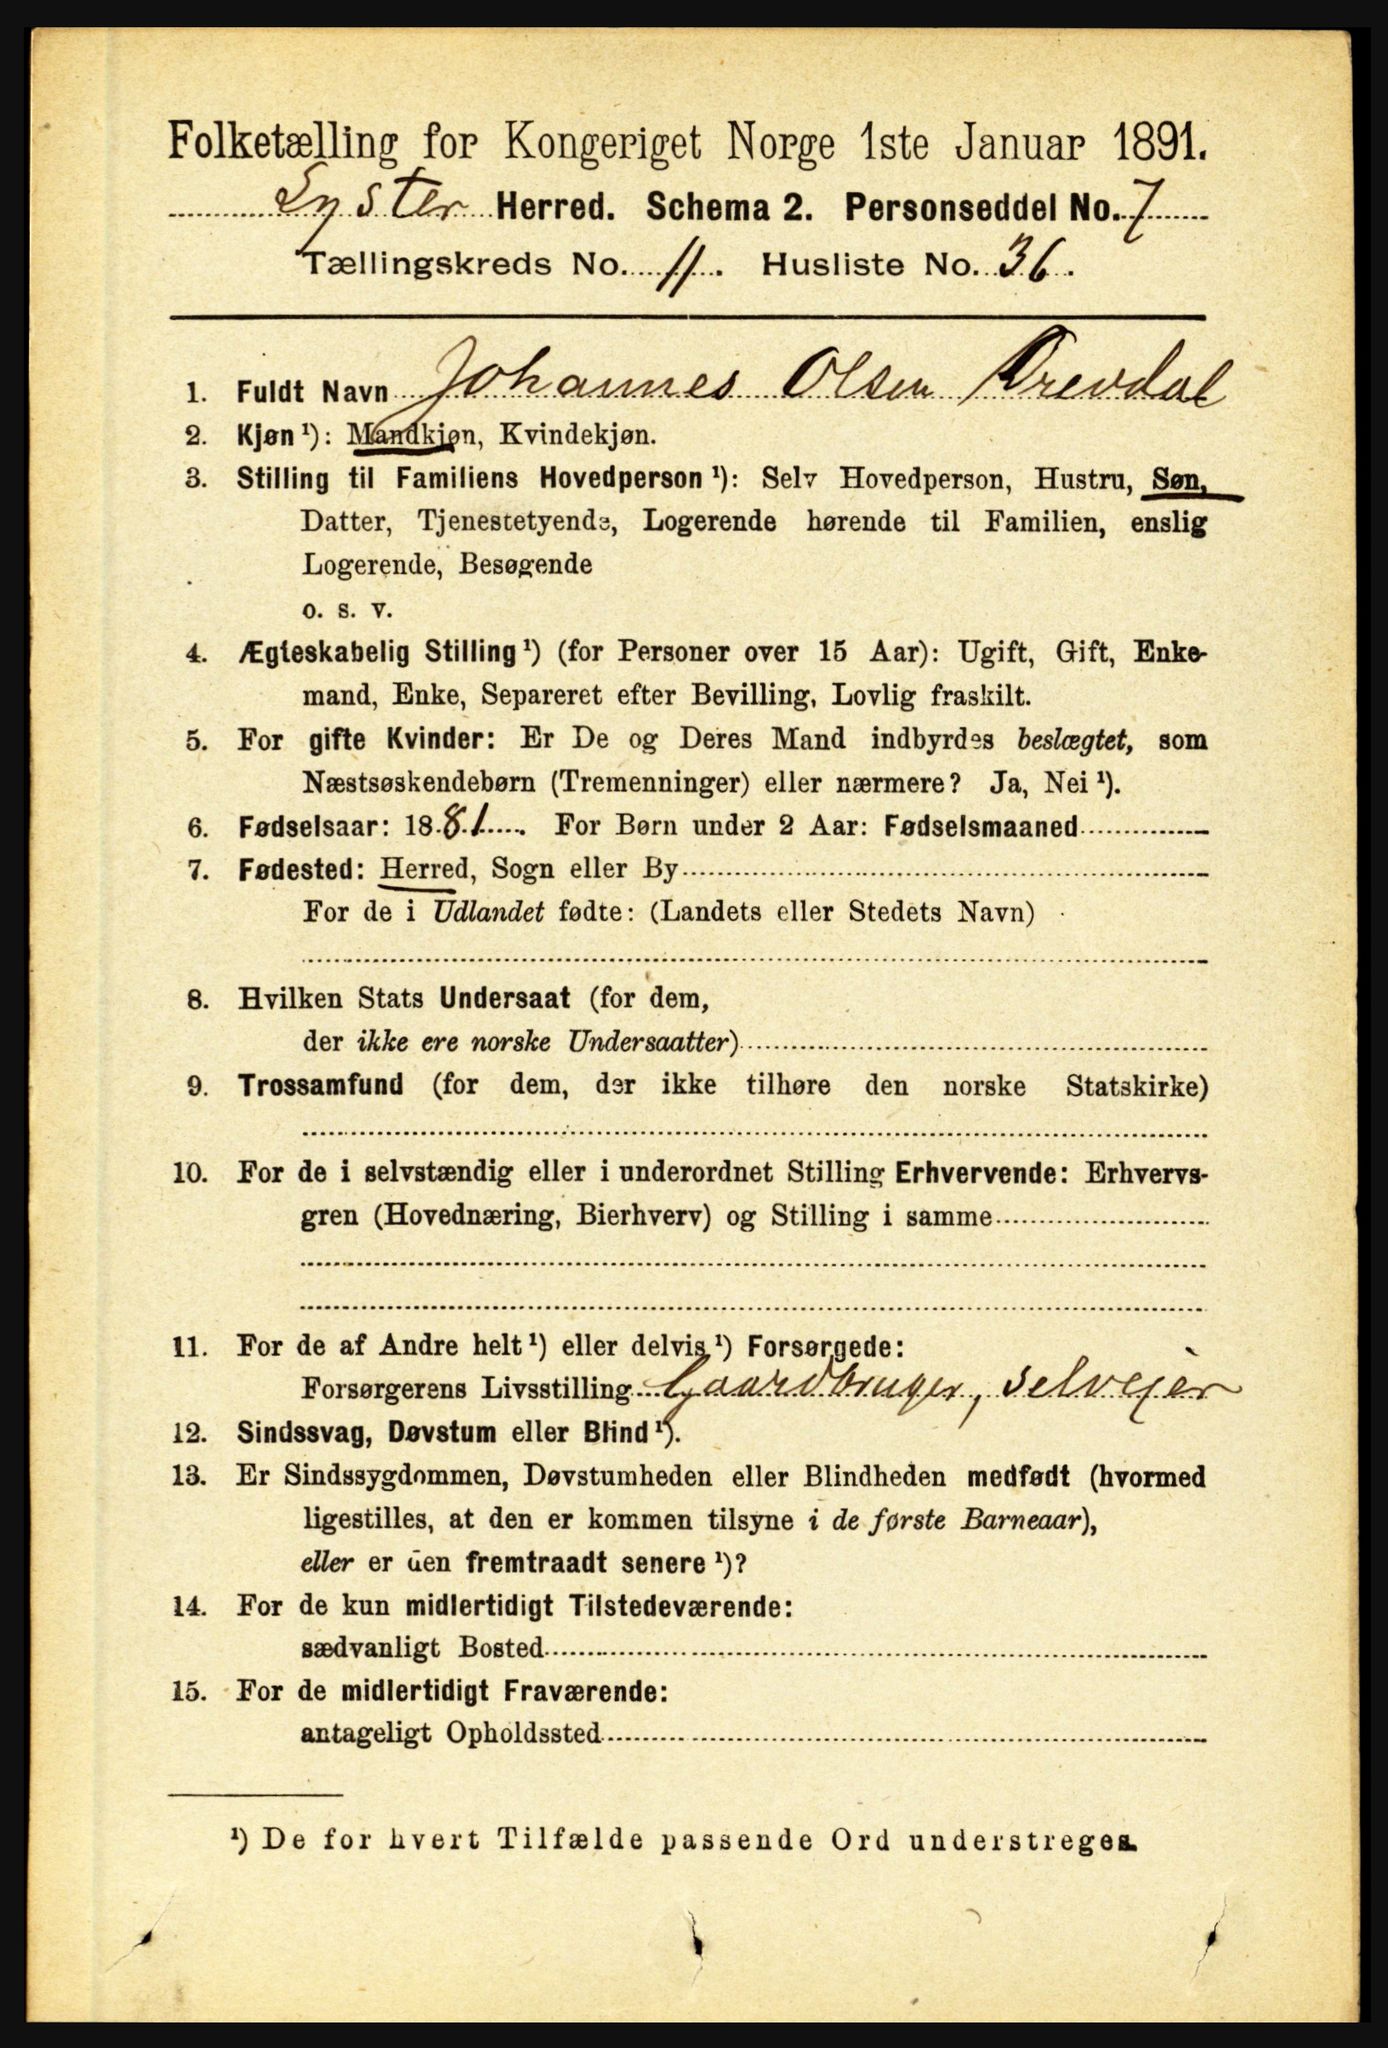 Folketælling for Kongeriget Norge 1ste Januar 1891.
Lyster Herred. Schema 2. Personseddel No. 7
Tællingskreds No. 11. Husliste No. 36.
1. Fuldt Navn Johannes Olsen Drevdal
2. Kjøn ¹): Mandkjøn, Kvindekjøn.
3. Stilling til Familiens Hovedperson ¹): Selv Hovedperson, Hustru, Søn,
Datter, Tjenestetyende, Logerende hørende til Familien, enslig
Logerende, Besøgende
o. s. v.
4. Ægteskabelig Stilling ¹) (for Personer over 15 Aar): Ugift, Gift, Enke-
mand, Enke, Separeret efter Bevilling, Lovlig fraskilt.
5. For gifte Kvinder: Er De og Deres Mand indbyrdes beslægtet, som
Næstsøskendebørn (Tremenninger) eller nærmere? Ja, Nei ¹).
6. Fødselsaar: 1881. For Børn under 2 Aar: Fødselsmaaned
7. Fødested: Herred, Sogn eller By
For de i Udlandet fødte: (Landets eller Stedets Navn)
8. Hvilken Stats Undersaat (for dem,
der ikke ere norske Undersaatter)
9. Trossamfund (for dem, der ikke tilhøre den norske Statskirke)
10. For de i selvstændig eller i underordnet Stilling Erhvervende: Erhvervs-
gren (Hovednæring, Bierhverv) og Stilling i samme
11. For de af Andre helt ¹) eller delvis ¹) Forsørgede:
Forsørgerens Livsstilling Gaardbruger, selvejer
12. Sindssvag, Døvstum eller Blind ¹).
13. Er Sindssygdommen, Døvstumheden eller Blindheden medfødt (hvormed
ligestilles, at den er kommen tilsyne i de første Barneaar),
eller er den fremtraadt senere ¹)?
14. For de kun midlertidigt Tilstedeværende:
sædvanligt Bosted
15. For de midlertidigt Fraværende:
antageligt Opholdssted
¹) De for hvert Tilfælde passende Ord understreges.